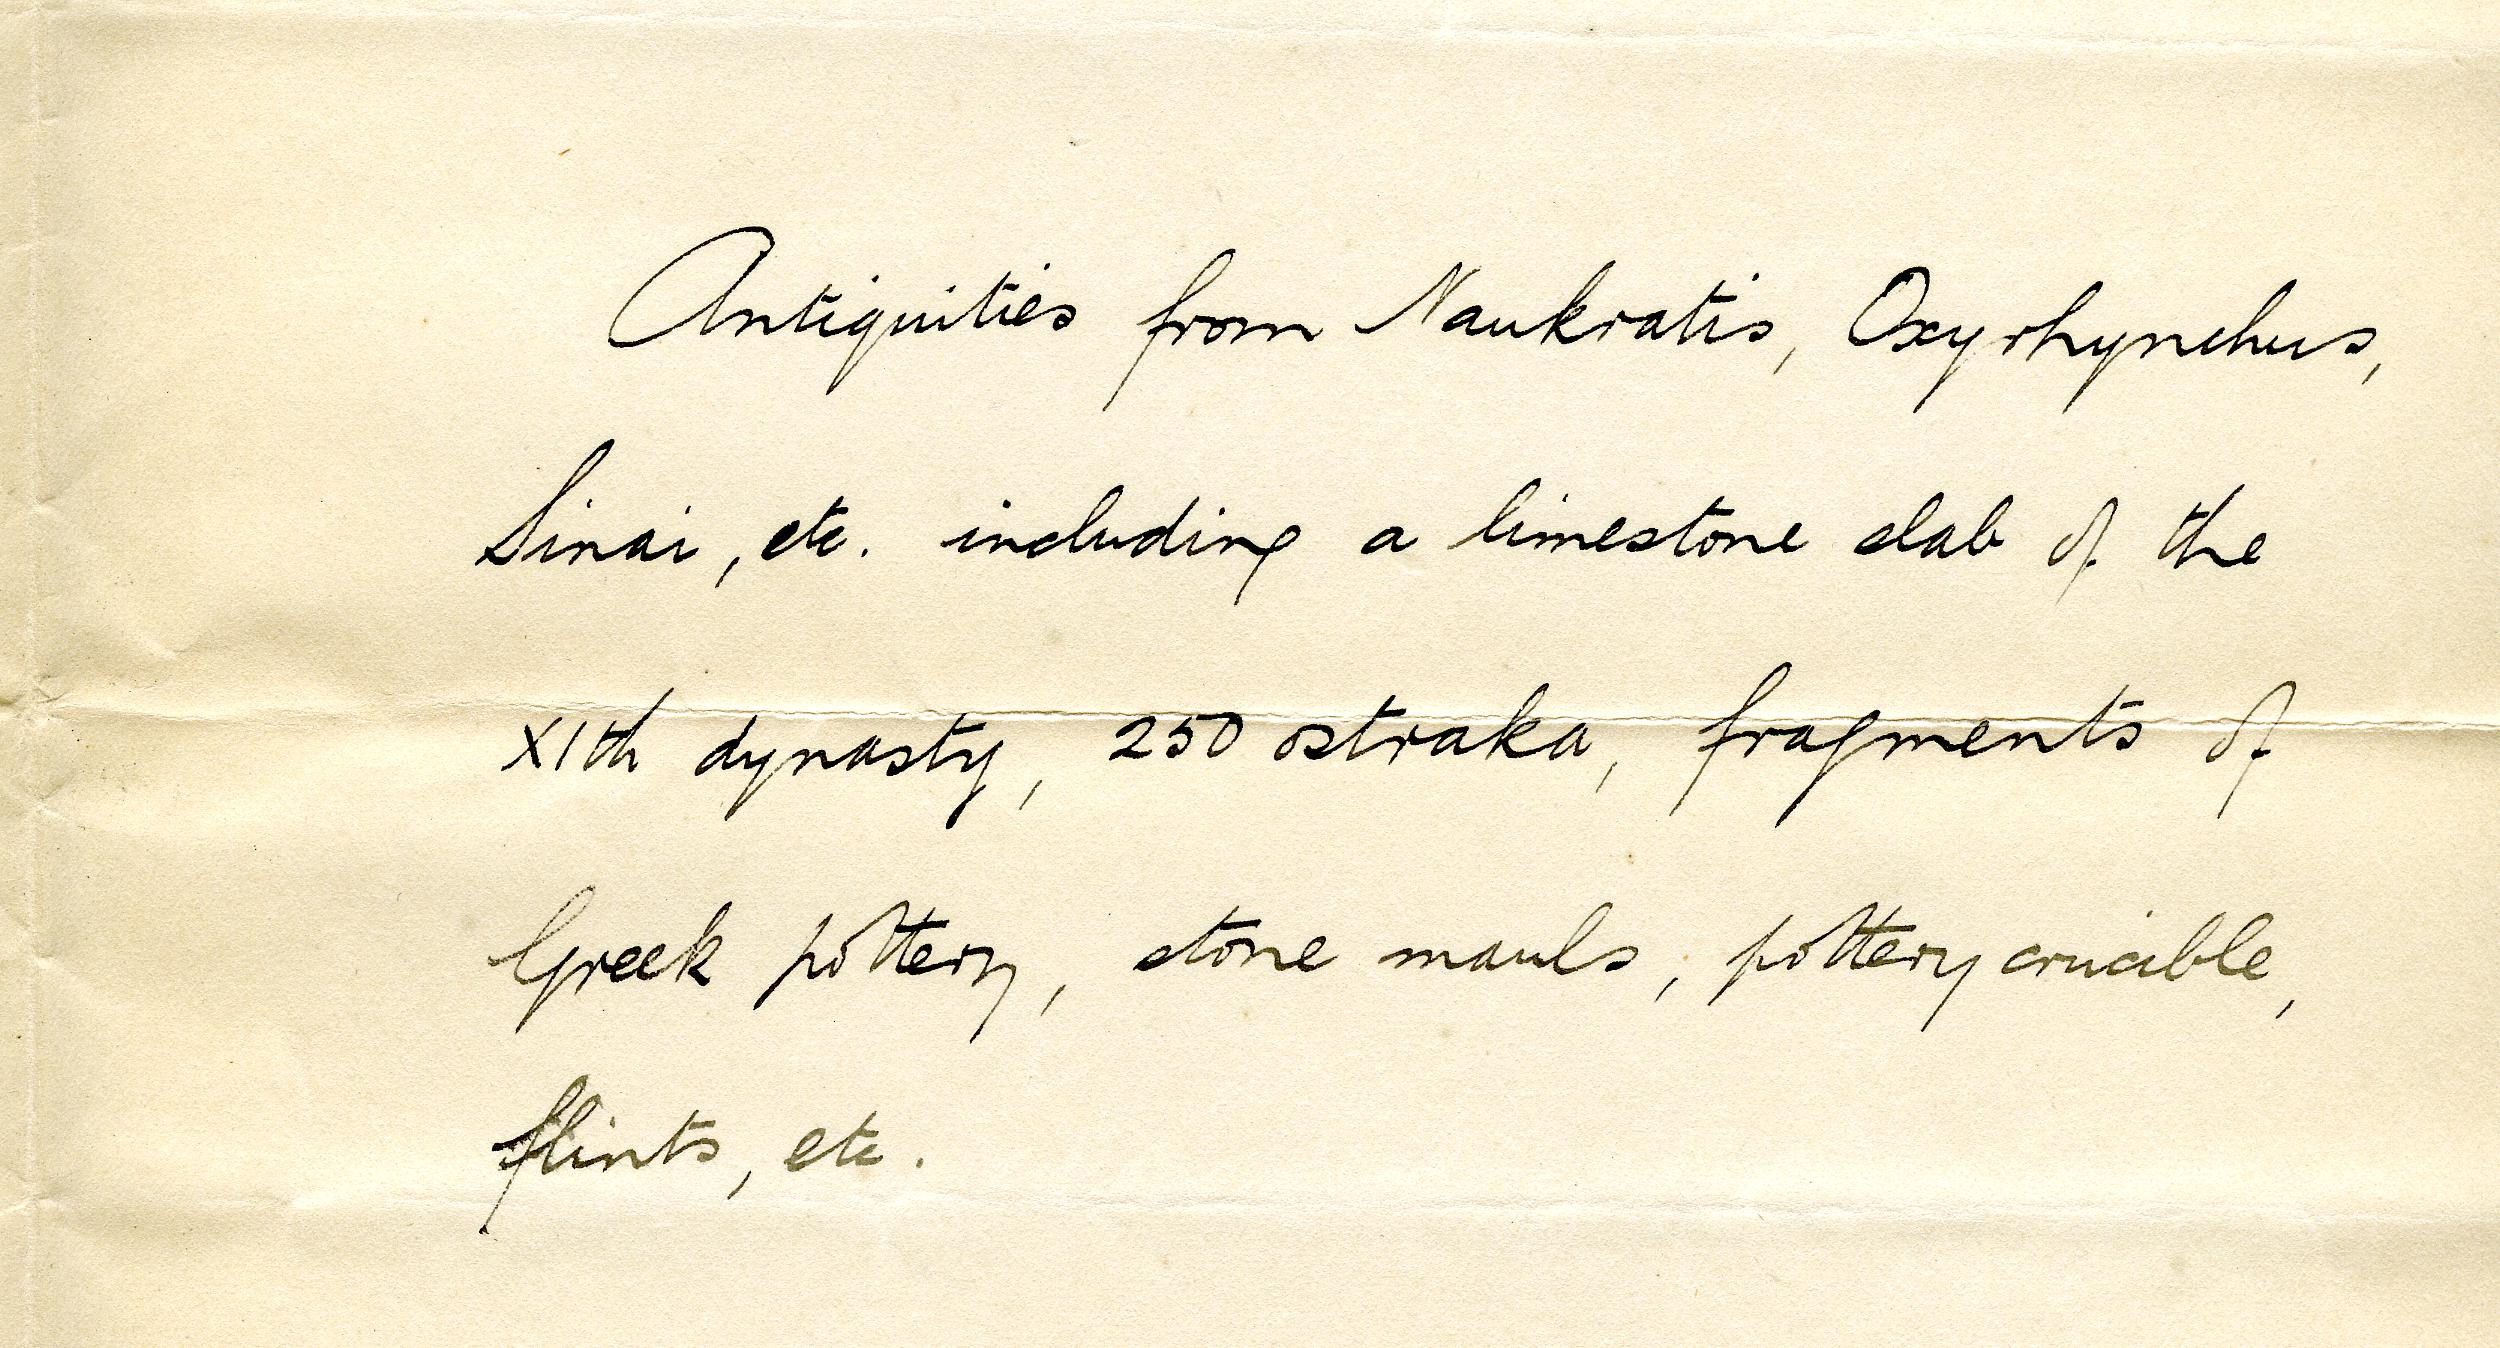 Antiquities from Naukratis, Oxyrhynchus,
Sinai, etc. including a limestone slab of the
XIth dynasty, 250 ostraka, fragments of
Greek pottery, stone mauls, pottery crucible,
flints, etc.